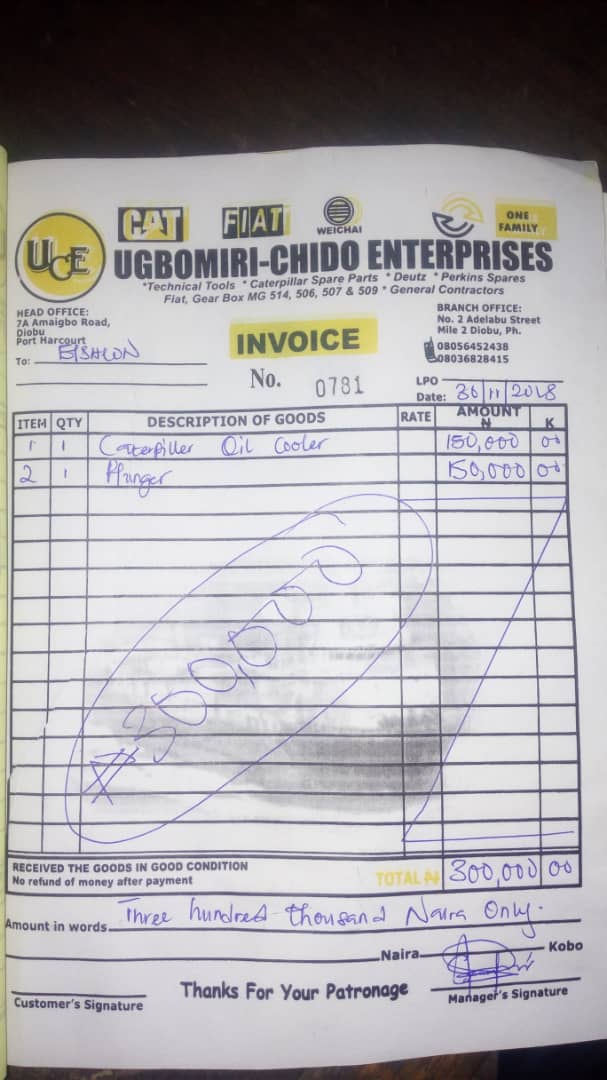 UCE
CAT FIAT WEICHAI ONE FAMILY
UGBOMIRI-CHIDO ENTERPRISES
*Technical Tools *Caterpillar Spare Parts *Deutz *Perkins Spares
Fiat, Gear Box MG 514, 506, 507 & 509 *General Contractors
HEAD OFFICE:
7A Amaigbo Road,
Diobu
Port Harcourt
BRANCH OFFICE:
No. 2 Adelabu Street
Mile 2 Diobu, Ph.
08056452438
08036828415
INVOICE
To:
No. 0781
LPO
Date: 30/11/2018
ITEM QTY DESCRIPTION OF GOODS RATE AMOUNT ₦ K
1 1 Caterpiller Oil Cooler 150,000 00
2 1 150,000 00
RECEIVED THE GOODS IN GOOD CONDITION
No refund of money after payment
TOTAL ₦ 300,000 00
Amount in words Three hundred thousand Naira Only.
Naira Kobo
Customer's Signature
Thanks For Your Patronage
Manager's Signature